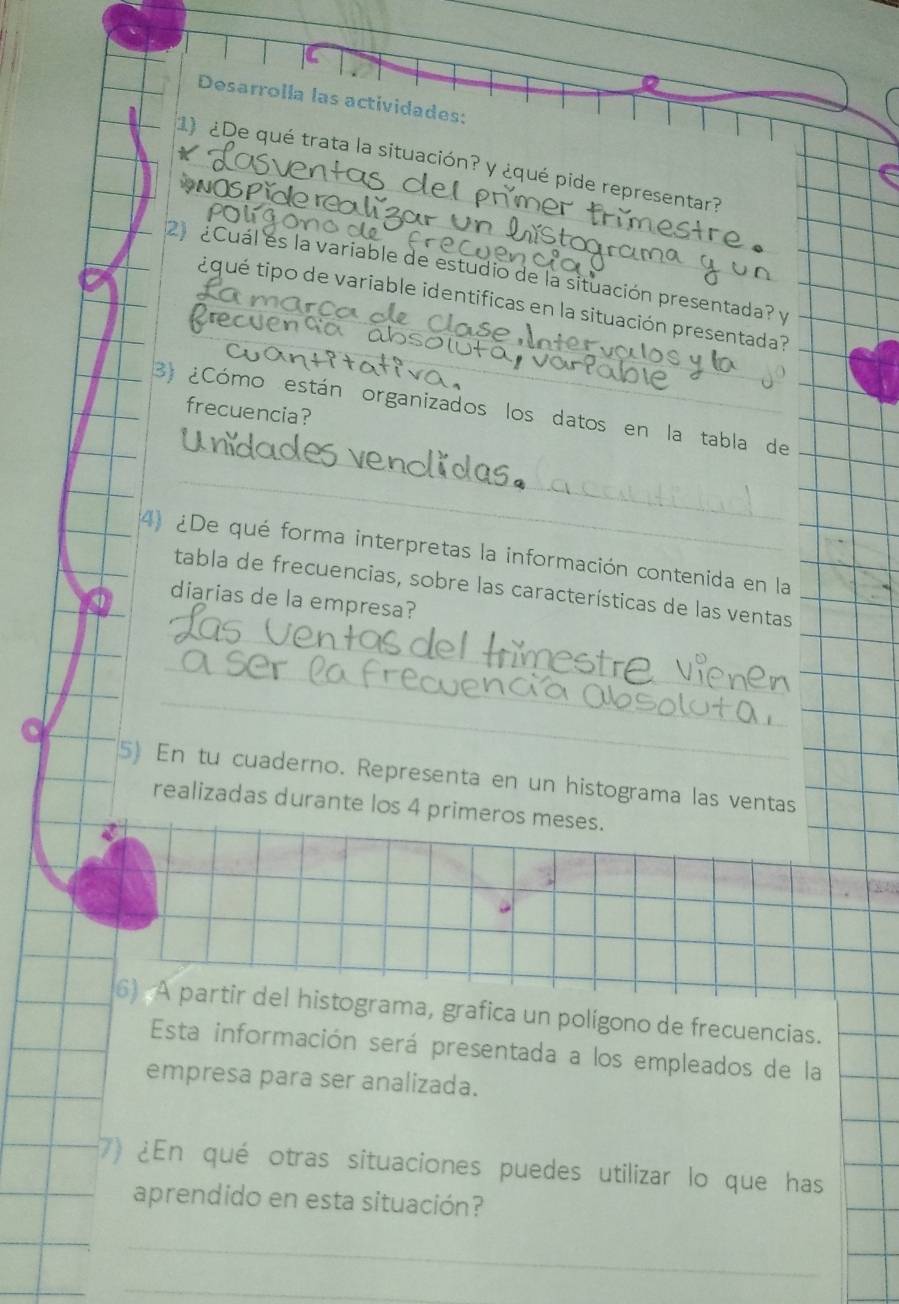 Desarrolla las actividades:
1) ¿De qué trata la situación? y ¿qué pide representar?
* Las ventas del primer trimestre.
nos pide realizar un histograma y un
polígono de frecuencia.
2) ¿Cuál es la variable de estudio de la situación presentada? y
¿qué tipo de variable identificas en la situación presentada?
La marca de clase, Intervalos y la
frecuencia absoluta, variable
cuantitativa.
3) ¿Cómo están organizados los datos en la tabla de
frecuencia?
Unidades vendidas.
4) ¿De qué forma interpretas la información contenida en la
tabla de frecuencias, sobre las características de las ventas
diarias de la empresa?
Las ventas del trimestre vienen
a ser la frecuencia absoluta.
5) En tu cuaderno. Representa en un histograma las ventas
realizadas durante los 4 primeros meses.
6) A partir del histograma, grafica un polígono de frecuencias.
Esta información será presentada a los empleados de la
empresa para ser analizada.
7) ¿En qué otras situaciones puedes utilizar lo que has
aprendido en esta situación?